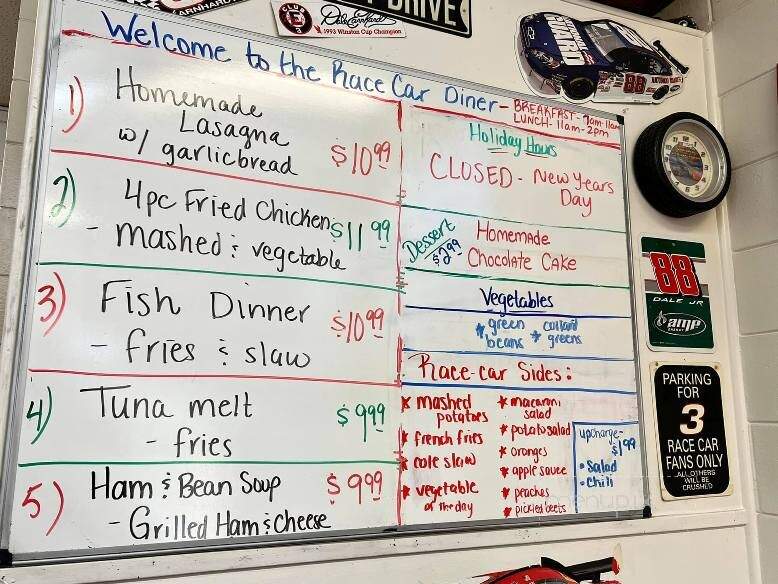 EARNHARDT
CLUB
E
Dale Earnhardt
1993 Winston Cup Champion
DRIVE
Welcome to the Race Car Diner- BREAKFAST- 7am-11am
LUNCH- 11am-2pm
1) Homemade
Lasagna
w/ garlicbread $10.99
2) 4pc Fried Chicken $11.99
- mashed & vegetable
3) Fish Dinner $10.99
- fries & slaw
4) Tuna melt $9.99
- fries
5) Ham & Bean Soup $9.99
- Grilled Ham & cheese
Holiday Hours
CLOSED - New Years
Day
Dessert
$2.99
Homemade
Chocolate Cake
Vegetables
* green beans
* collard greens
Race-car Sides:
* mashed potatoes
* french fries
* cole slaw
* vegetable of the day
* macaroni salad
* potato salad
* oranges
* apple sauce
* peaches
* pickled beets
upcharge-
$1.99
• Salad
• chili
NATIONAL GUARD
88
88
DALE JR
amp
ENERGY
PARKING
FOR
3
RACE CAR
FANS ONLY
ALL OTHERS
WILL BE
CRUSH'D